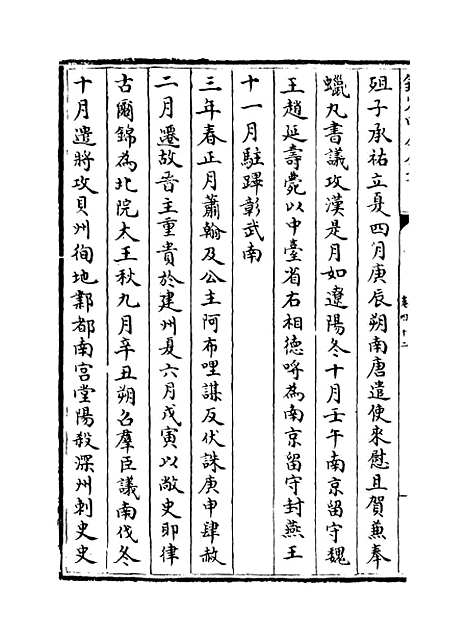 殂子承祐立夏四月庚辰朔南唐遣使來慰且賀蕭奉
蠟丸書議攻漢是月如遼陽冬十月壬午南京留守魏
王趙延壽薨以中臺省右相德呼為南京留守封燕王
十一月駐蹕彰武南
三年春正月蕭翰及公主阿布哩謀反伏誅庚申肆赦
二月遷故晉主重貴於建州夏六月戊寅以敞史即律
古爾錦為北院大王秋九月辛丑朔召羣臣議南伐冬
十月遣將攻貝州徇地鄴都南宫堂陽殺深州刺史史
卷四十二